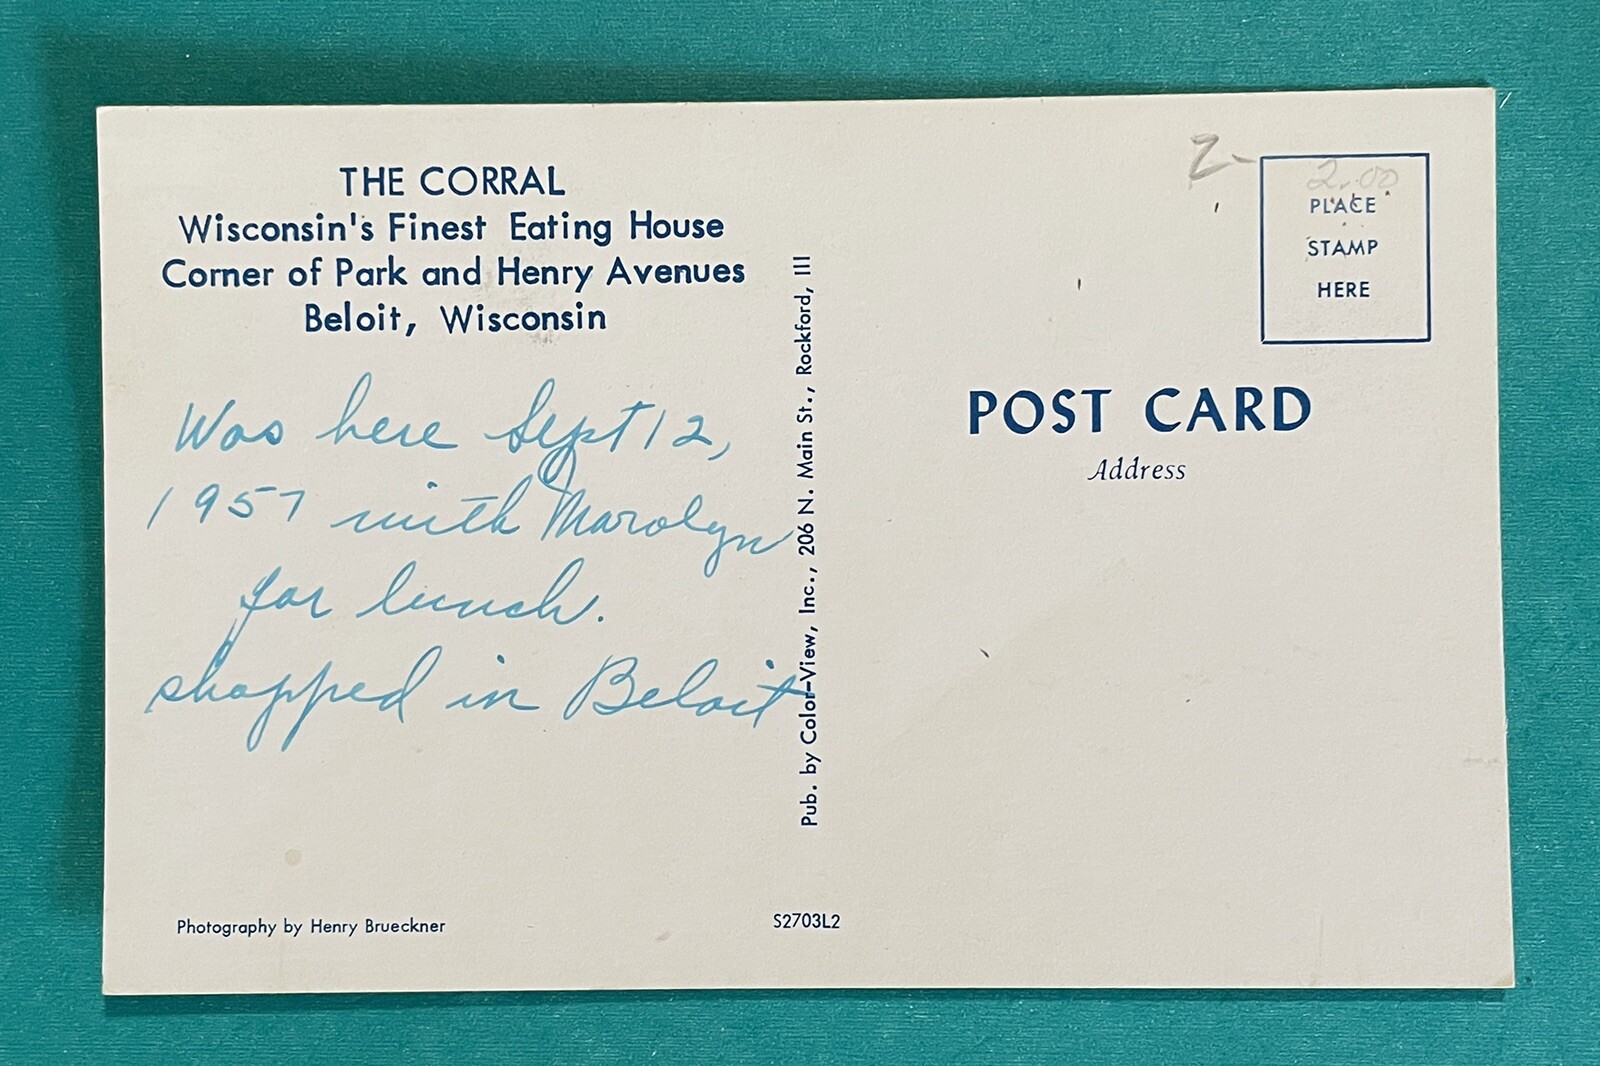 THE CORRAL
Wisconsin's Finest Eating House
Corner of Park and Henry Avenues
Beloit, Wisconsin
Was here Sept 12,
1957 with Marolyn
for lunch.
shopped in Beloit
Photography by Henry Brueckner
Pub. by Color-View, Inc., 206 N. Main St., Rockford, Ill
S2703L2
2-
2.00
PLACE
STAMP
HERE
POST CARD
Address